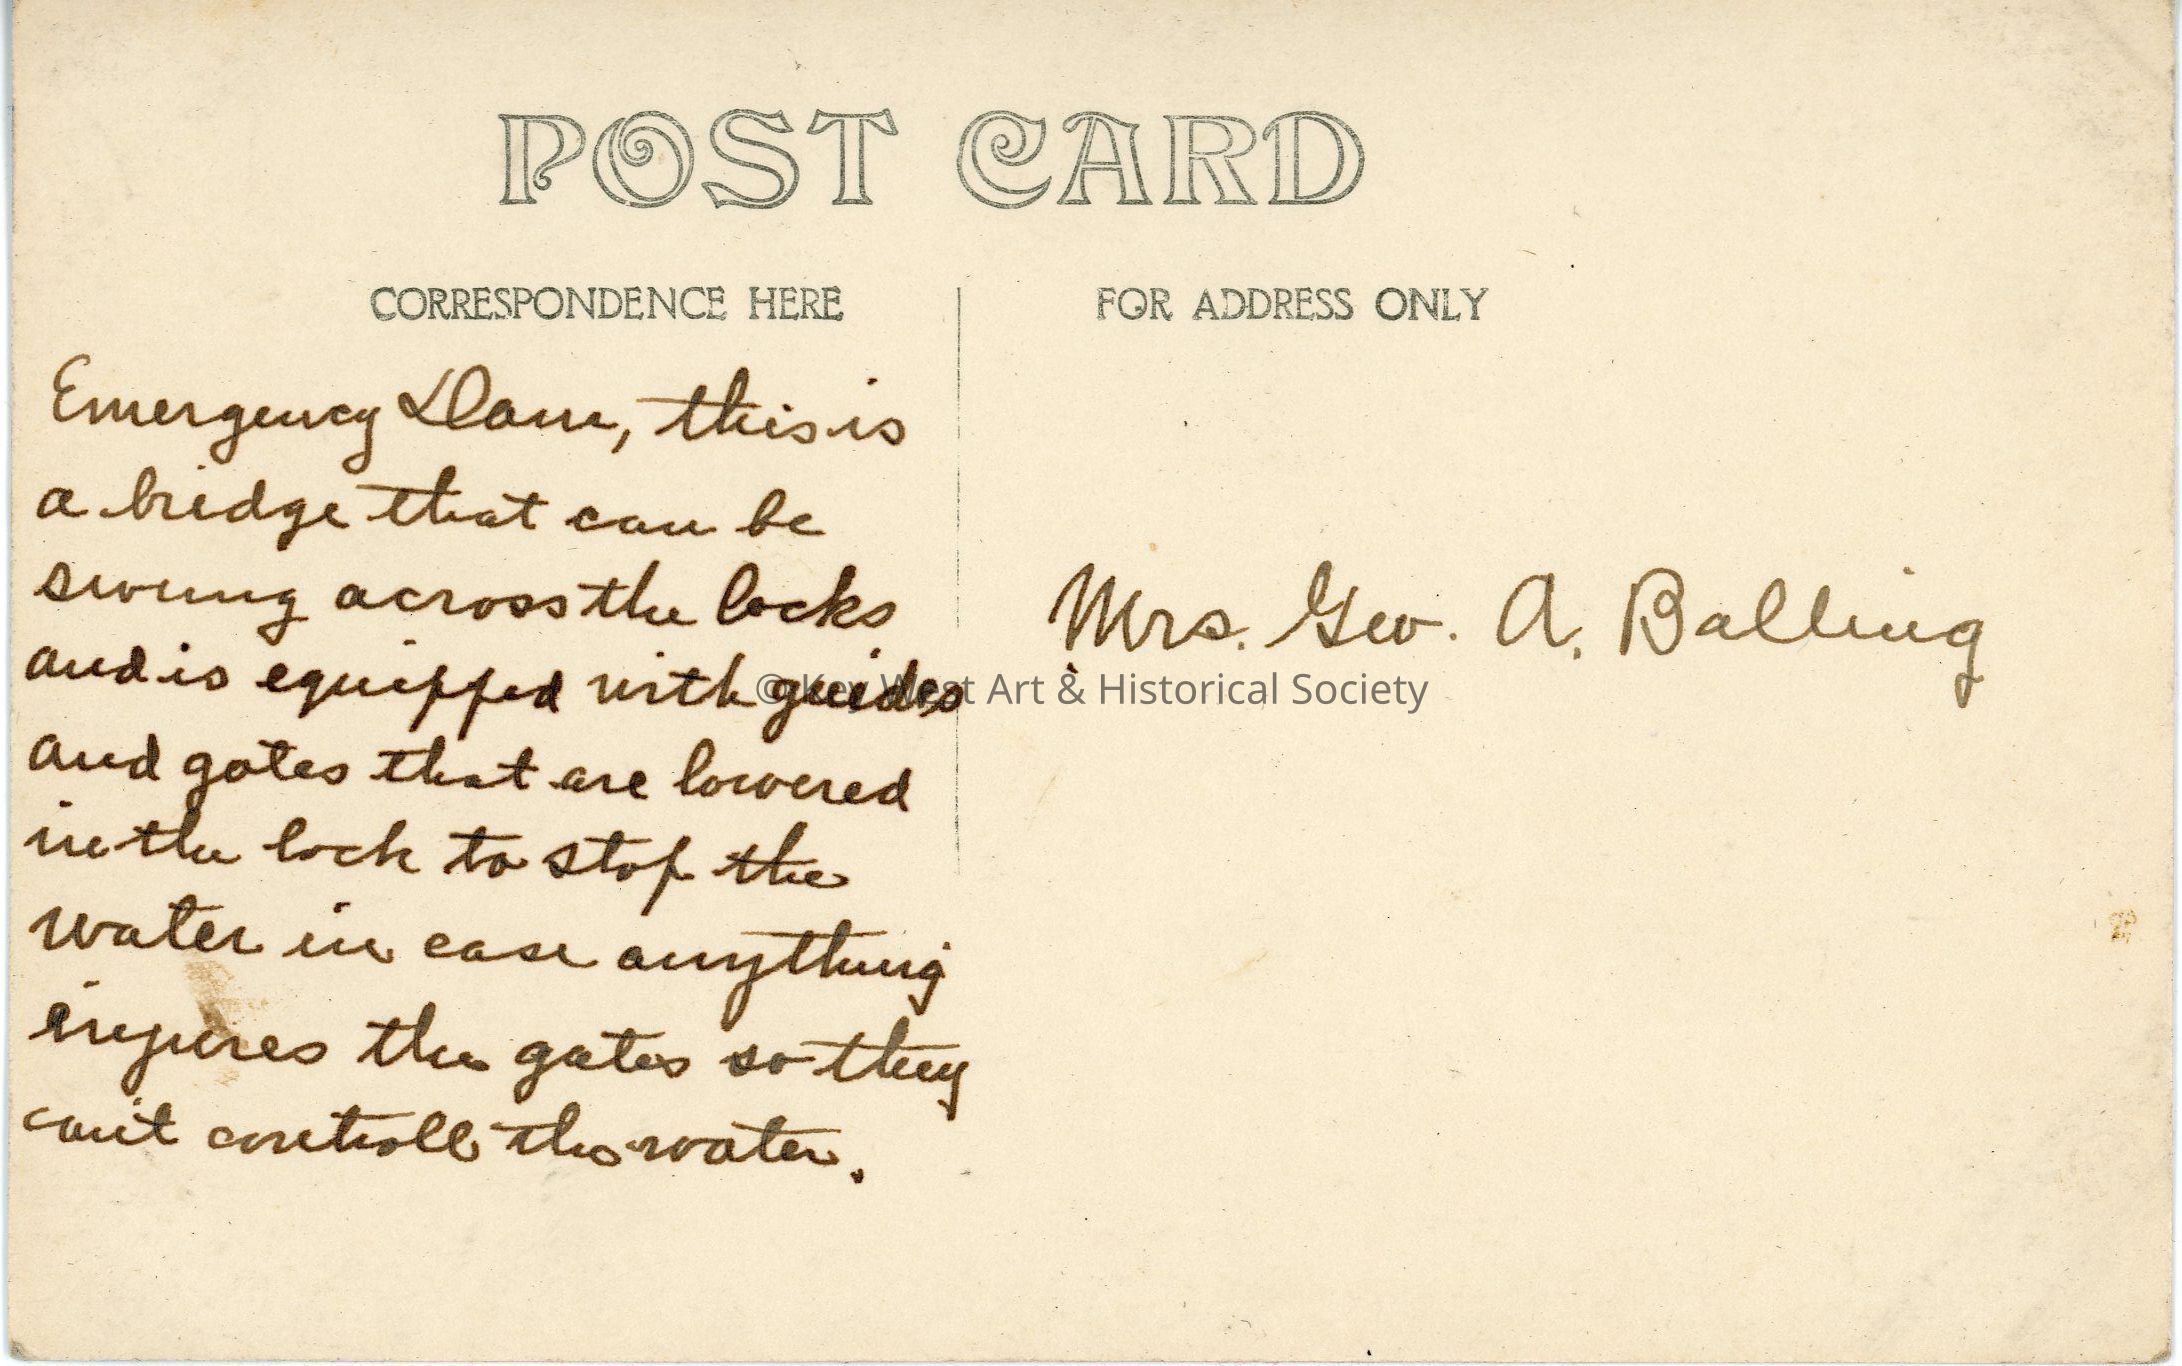 POST CARD
CORRESPONDENCE HERE
FOR ADDRESS ONLY
Emergency Dam, this is
a bridge that can be
swung across the locks
and is equipped with guides
and gates that are lowered
in the lock to stop the
water in case anything
injures the gates so they
can't controll the water.
Mrs. Geo. A. Balling
© Key West Art & Historical Society